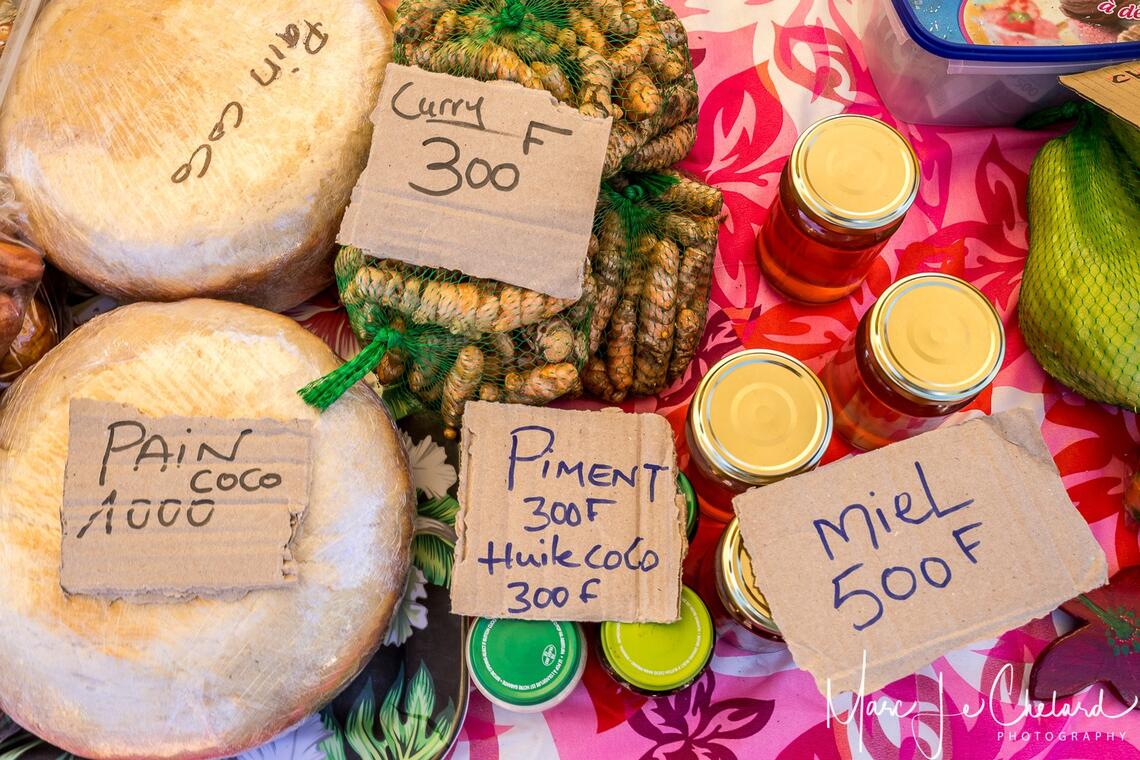 Pain
coco
Curry
300 F
à dé
PAiN
coco
1000
PiMENT
300F
Huile coco
300 F
MieL
500 F
Marc Le Chelard
PHOTOGRAPHY